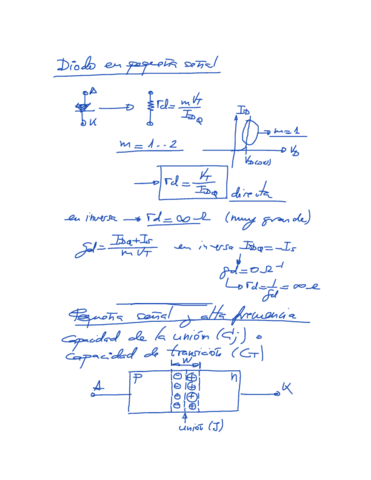 Diodo en pequeña señal
A
K
rd = mVT / IDQ
ID
m=1
VD
VD(on)
m = 1..2
rd = VT / IDQ
directa
en inversa → rd = ∞ Ω (muy grande)
gd = IDQ + IS / m VT en inversa IDQ = -IS
gd = 0 Ω⁻¹
rd = 1/gd = ∞ Ω
Pequeña señal y alta frecuencia
Capacidad de la unión (Cj) o
capacidad de transición (CT)
W
A P n K
unión (J)